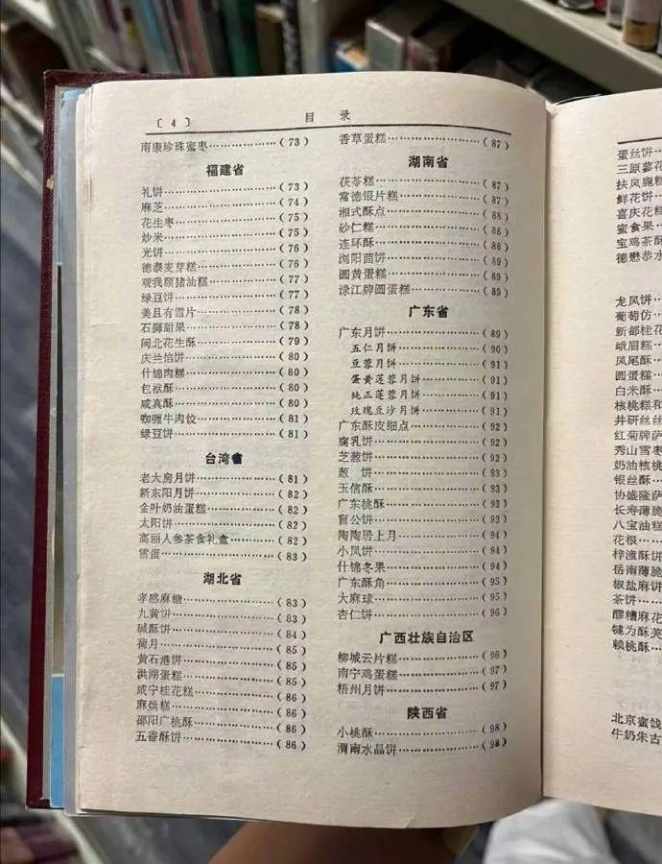 〔4〕 目 录
南康珍珠蜜枣………………（73）
福建省
礼饼………………（73）
麻芝………………（74）
花生枣………………（75）
炒米………………（75）
光饼………………（76）
德泰麦芽糕………………（76）
观我颐猪油糕………………（77）
绿豆饼………………（77）
美且有雪片………………（78）
石狮甜果………………（78）
闽北花生酥………………（79）
庆兰馅饼………………（80）
什锦肉糕………………（80）
包袱酥………………（80）
咸真酥………………（80）
咖喱牛肉饺………………（81）
绿豆饼………………（81）
台湾省
老大房月饼………………（81）
新东阳月饼………………（82）
金叶奶油蛋糕………………（82）
太阳饼………………（82）
高丽人参茶食礼盒………（82）
雪蛋………………（83）
湖北省
孝感麻糖………………（83）
九黄饼………………（83）
碱酥饼………………（84）
荷月………………（85）
黄石港饼………………（85）
洪湖蛋糕………………（85）
咸宁桂花糕………………（86）
麻烘糕………………（86）
邵阳广桃酥………………（86）
五香酥饼………………（86）
香草蛋糕………………（87）
湖南省
茯苓糕………………（87）
常德银片糕………………（87）
湘式酥点………………（88）
砂仁糕………………（88）
连环酥………………（88）
浏阳茴饼………………（89）
圆黄蛋糕………………（89）
渌江牌圆蛋糕………………（89）
广东省
广东月饼………………（89）
五仁月饼………………（90）
豆蓉月饼………………（91）
蛋黄莲蓉月饼………………（91）
纯正莲蓉月饼………………（91）
玫瑰豆沙月饼………………（91）
广东酥皮细点………………（92）
腐乳饼………………（92）
芝葱饼………………（92）
葱 饼………………（93）
玉信酥………………（93）
广东桃酥………………（93）
盲公饼………………（93）
陶陶居上月………………（94）
小凤饼………………（94）
什锦冬果………………（94）
广东酥角………………（95）
大麻球………………（95）
杏仁饼………………（96）
广西壮族自治区
柳城云片糕………………（96）
南宁鸡蛋糕………………（97）
梧州月饼………………（97）
陕西省
小桃酥………………（98）
渭南水晶饼………………（98）
蛋丝饼…
三原蓼花
扶风鹿糕
鲜花饼…
喜庆花糕
蜜食果…
宝鸡茶酥
德懋恭水
龙凤饼…
葡萄仿…
新都桂花
峨眉糕…
凤尾酥…
圆蛋糕…
白米酥…
核桃糕和
井研丝丝
红菊牌萨
秀山雪枣
奶油核桃
银丝酥…
协盛隆萨
长寿薄脆
八宝油糕
花根…
梓潼酥饼
岳南薄脆
椒盐麻饼
茶饼…
醪糟麻花
犍为酥芙
赖桃酥…
北京蜜饯
牛奶朱古